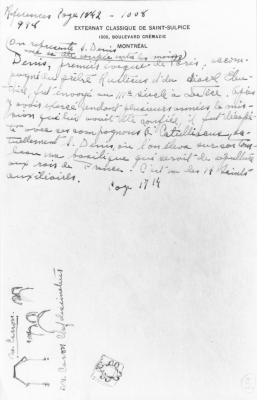 References Page 1042 - 1008
998
EXTERNAT CLASSIQUE DE SAINT-SULPICE
1000, BOULEVARD CRÉMAZIE
MONTRÉAL
On représente S. Denis
avec sa tête coupée entre les mains
Denis, premier évêque de Paris, accom-
pagné du prêtre Rustique et du diacre Eleu-
thère, fut envoyé au IIIe siècle à Lutèce. Après
y avoir exercé pendant plusieurs années la mis-
sion qui lui avait été confiée, il fut décapité
avec ses compagnons à Catulliacus, ac-
tuellement S. Denis, où l'on éleva sur son tom-
beau une basilique qui servit de sépulture
aux rois de France. C'est un des 14 Saints
auxiliaires.
Page 1714